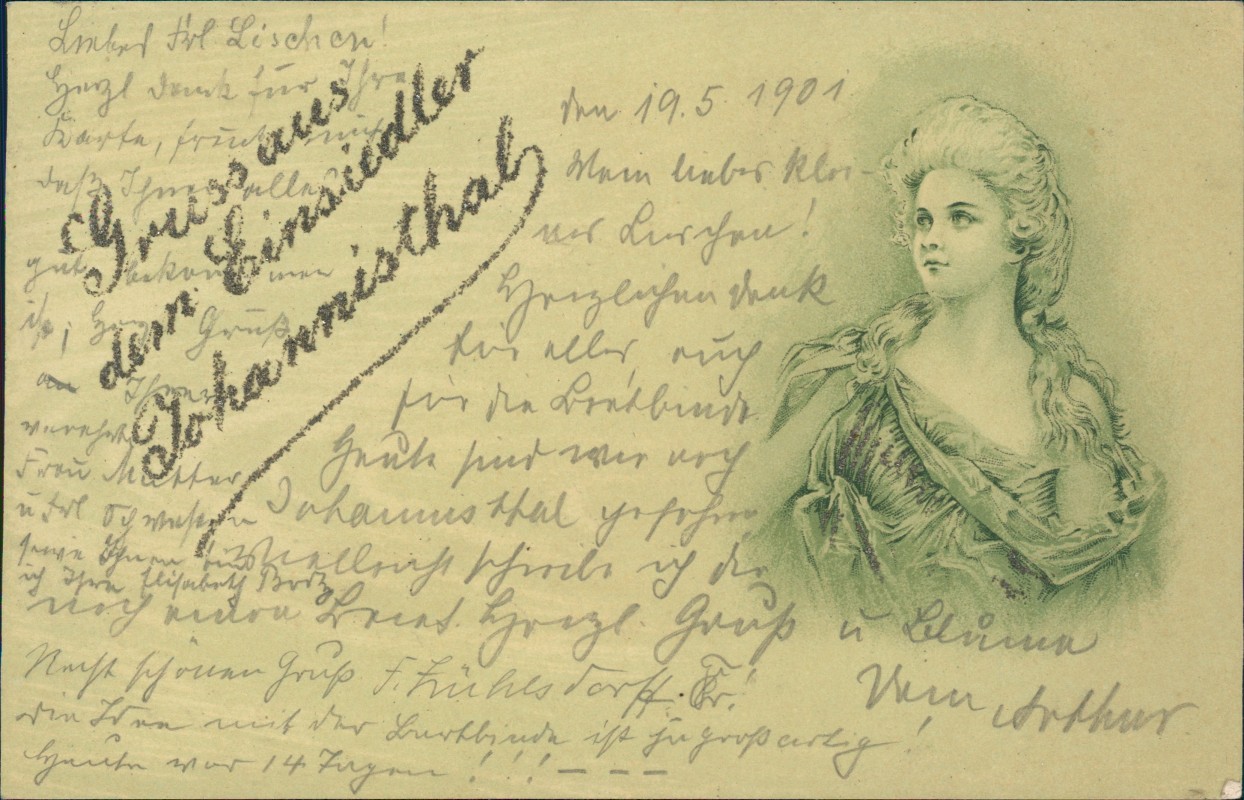 Liebes Frl Lischen!
Herzl Dank für Ihre
Karte, freut mich
daß Ihnen alles
gut bekommen
ist, Herzl Gruß
an Ihre
verehrte
Frau Mutter
u Frl Schwestern
sowie Ihnen
ich Ihre Elisabeth
Gruss aus
dem Einsiedler
Johannisthal
den 19.5 1901
Mein liebes klei-
nes Lieschen!
Herzlichen Dank
für alles, auch
für die Bartbinde.
Heute sind wir nach
Johannisthal gefahren
Vielleicht schreibe ich dir
noch einen Brief. Herzl. Gruß u Blume
Dein Arthur
Recht schönen Gruß F. Zühlsdorff
die Idee mit der Bartbinde ist zu großartig!
Heute vor 14 Tagen !!! – – –